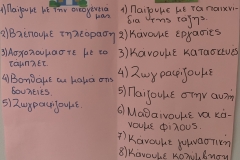 1) Παίζουμε με την οικογένειά
μας
2) Βλέπουμε τηλεόραση
3) Ασχολούμαστε με το
τάμπλετ.
4) Βοηθάμε τη μαμά στις
δουλειές.
5) Ζωγραφίζουμε.
1) Παίζουμε με τα παιχνί-
δια της τάξης.
2) Κάνουμε εργασίες
3) Κάνουμε κατασκευές
4) Ζωγραφίζουμε
5) Παίζουμε στην αυλή
6) Μαθαίνουμε να κά-
νουμε φίλους.
7) Κάνουμε γυμναστική
8) Κάνουμε κολύμβηση